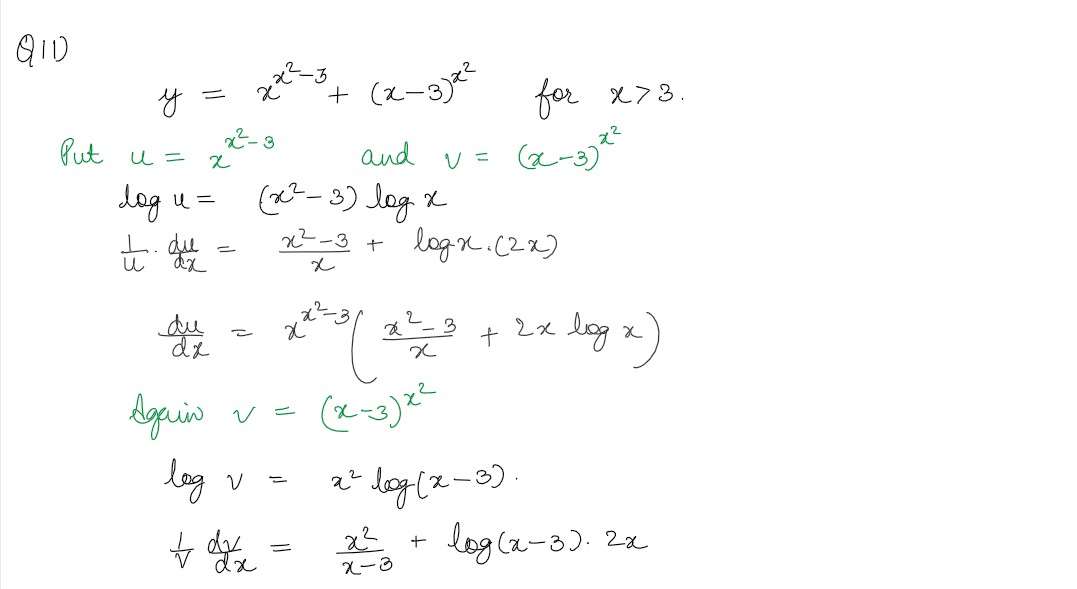 Q11)
y = x^{x^2-3} + (x-3)^{x^2} for x>3.
Put u = x^{x^2-3} and v = (x-3)^{x^2}
log u = (x^2-3) log x
1/u · du/dx = (x^2-3)/x + log x·(2x)
du/dx = x^{x^2-3} ( (x^2-3)/x + 2x log x )
Again v = (x-3)^{x^2}
log v = x^2 log(x-3).
1/v dv/dx = x^2/(x-3) + log(x-3). 2x